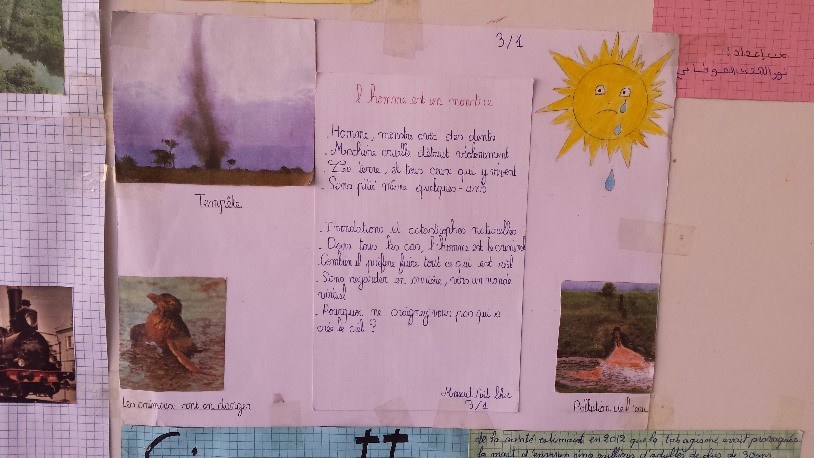 3/1
l'homme est un monstre
Homme, monstre avec des dents
- Machine cruelle détruit
- La terre, et tous ceux qui y vivent
- Sans pitié même quelques-uns
- Inondations et catastrophes naturelles
- Dans tous les cas, l'homme est le criminel
- Combien il préfère faire tout ce qui est vil
- Sans regarder en arrière, vers un monde
virtuel
- Pourquoi ne craignez-vous pas qui a
crée le ciel ?
3/1
Tempête
Les animaux sont en danger
Pollution de l'eau
de la santé estimaient en 2012 que le tabagisme avait provoqué
la mort d'environ cinq millions d'adultes de plus de 30 ans